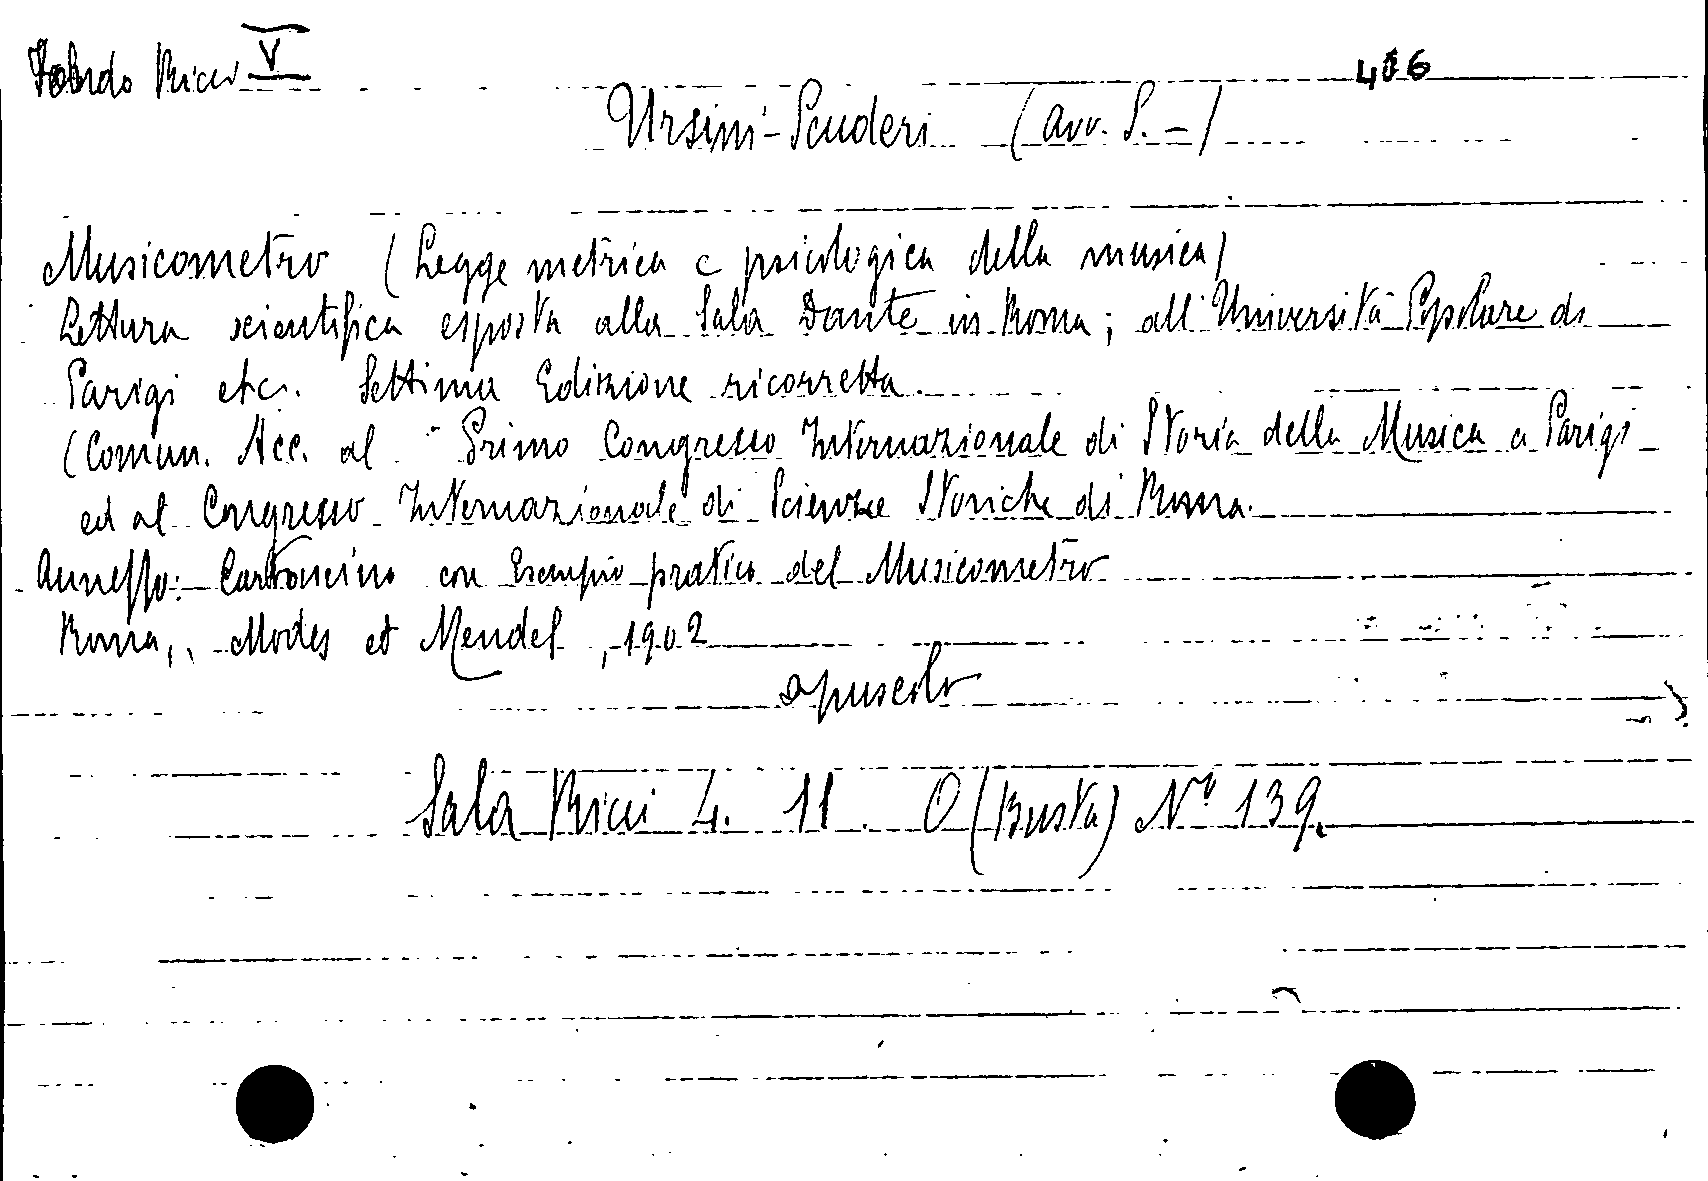 Fondo Ricci V
406
Ursini-Scuderi (Avv. S. =)
Musicometro (Legge metrica e psicologica della musica)
Lettura scientifica esposta alla Sala Dante in Roma; all'Università Popolare di
Parigi etc. Settima Edizione ricorretta.
(Comun. Acc. al Primo Congresso Internazionale di Storia della Musica a Parigi
ed al Congresso Internazionale di Scienze Storiche di Roma.
Annesso: Cartoncino con Esempio pratico del Musicometro
Roma, Modes et Mendel, 1902
opuscolo
Sala Ricci 4. 11. O (Busta) N° 139.